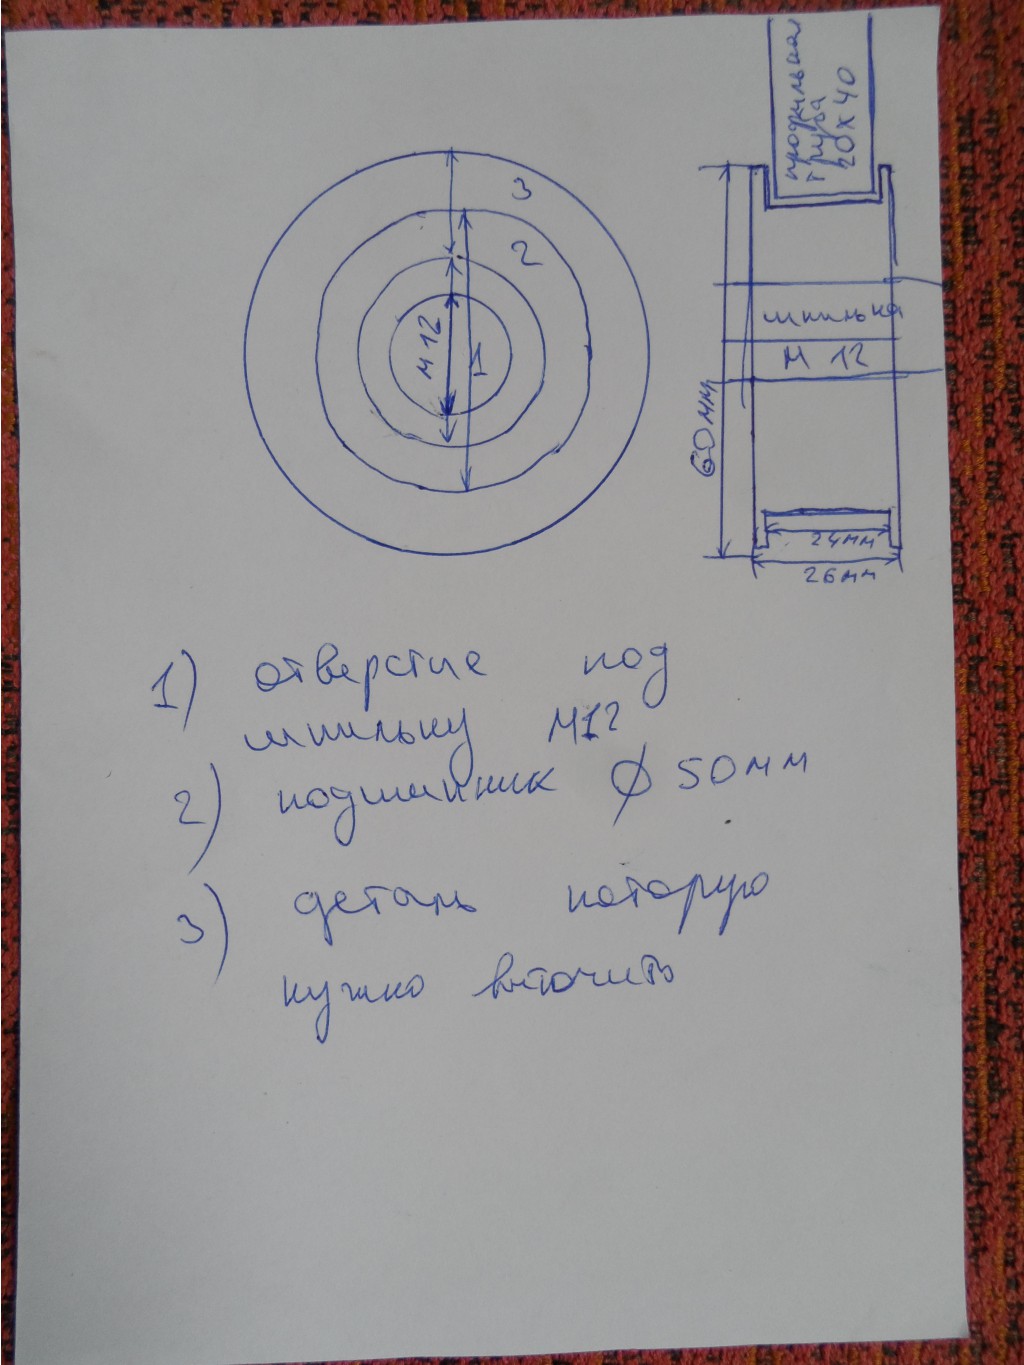 профильная
труба
20 х 40
3
2
М 12
1
шпилька
М 12
60мм
24мм
26мм
1) отверстие под
шпильку М12
2) подшипник Ø 50мм
3) деталь которую
нужно выточить